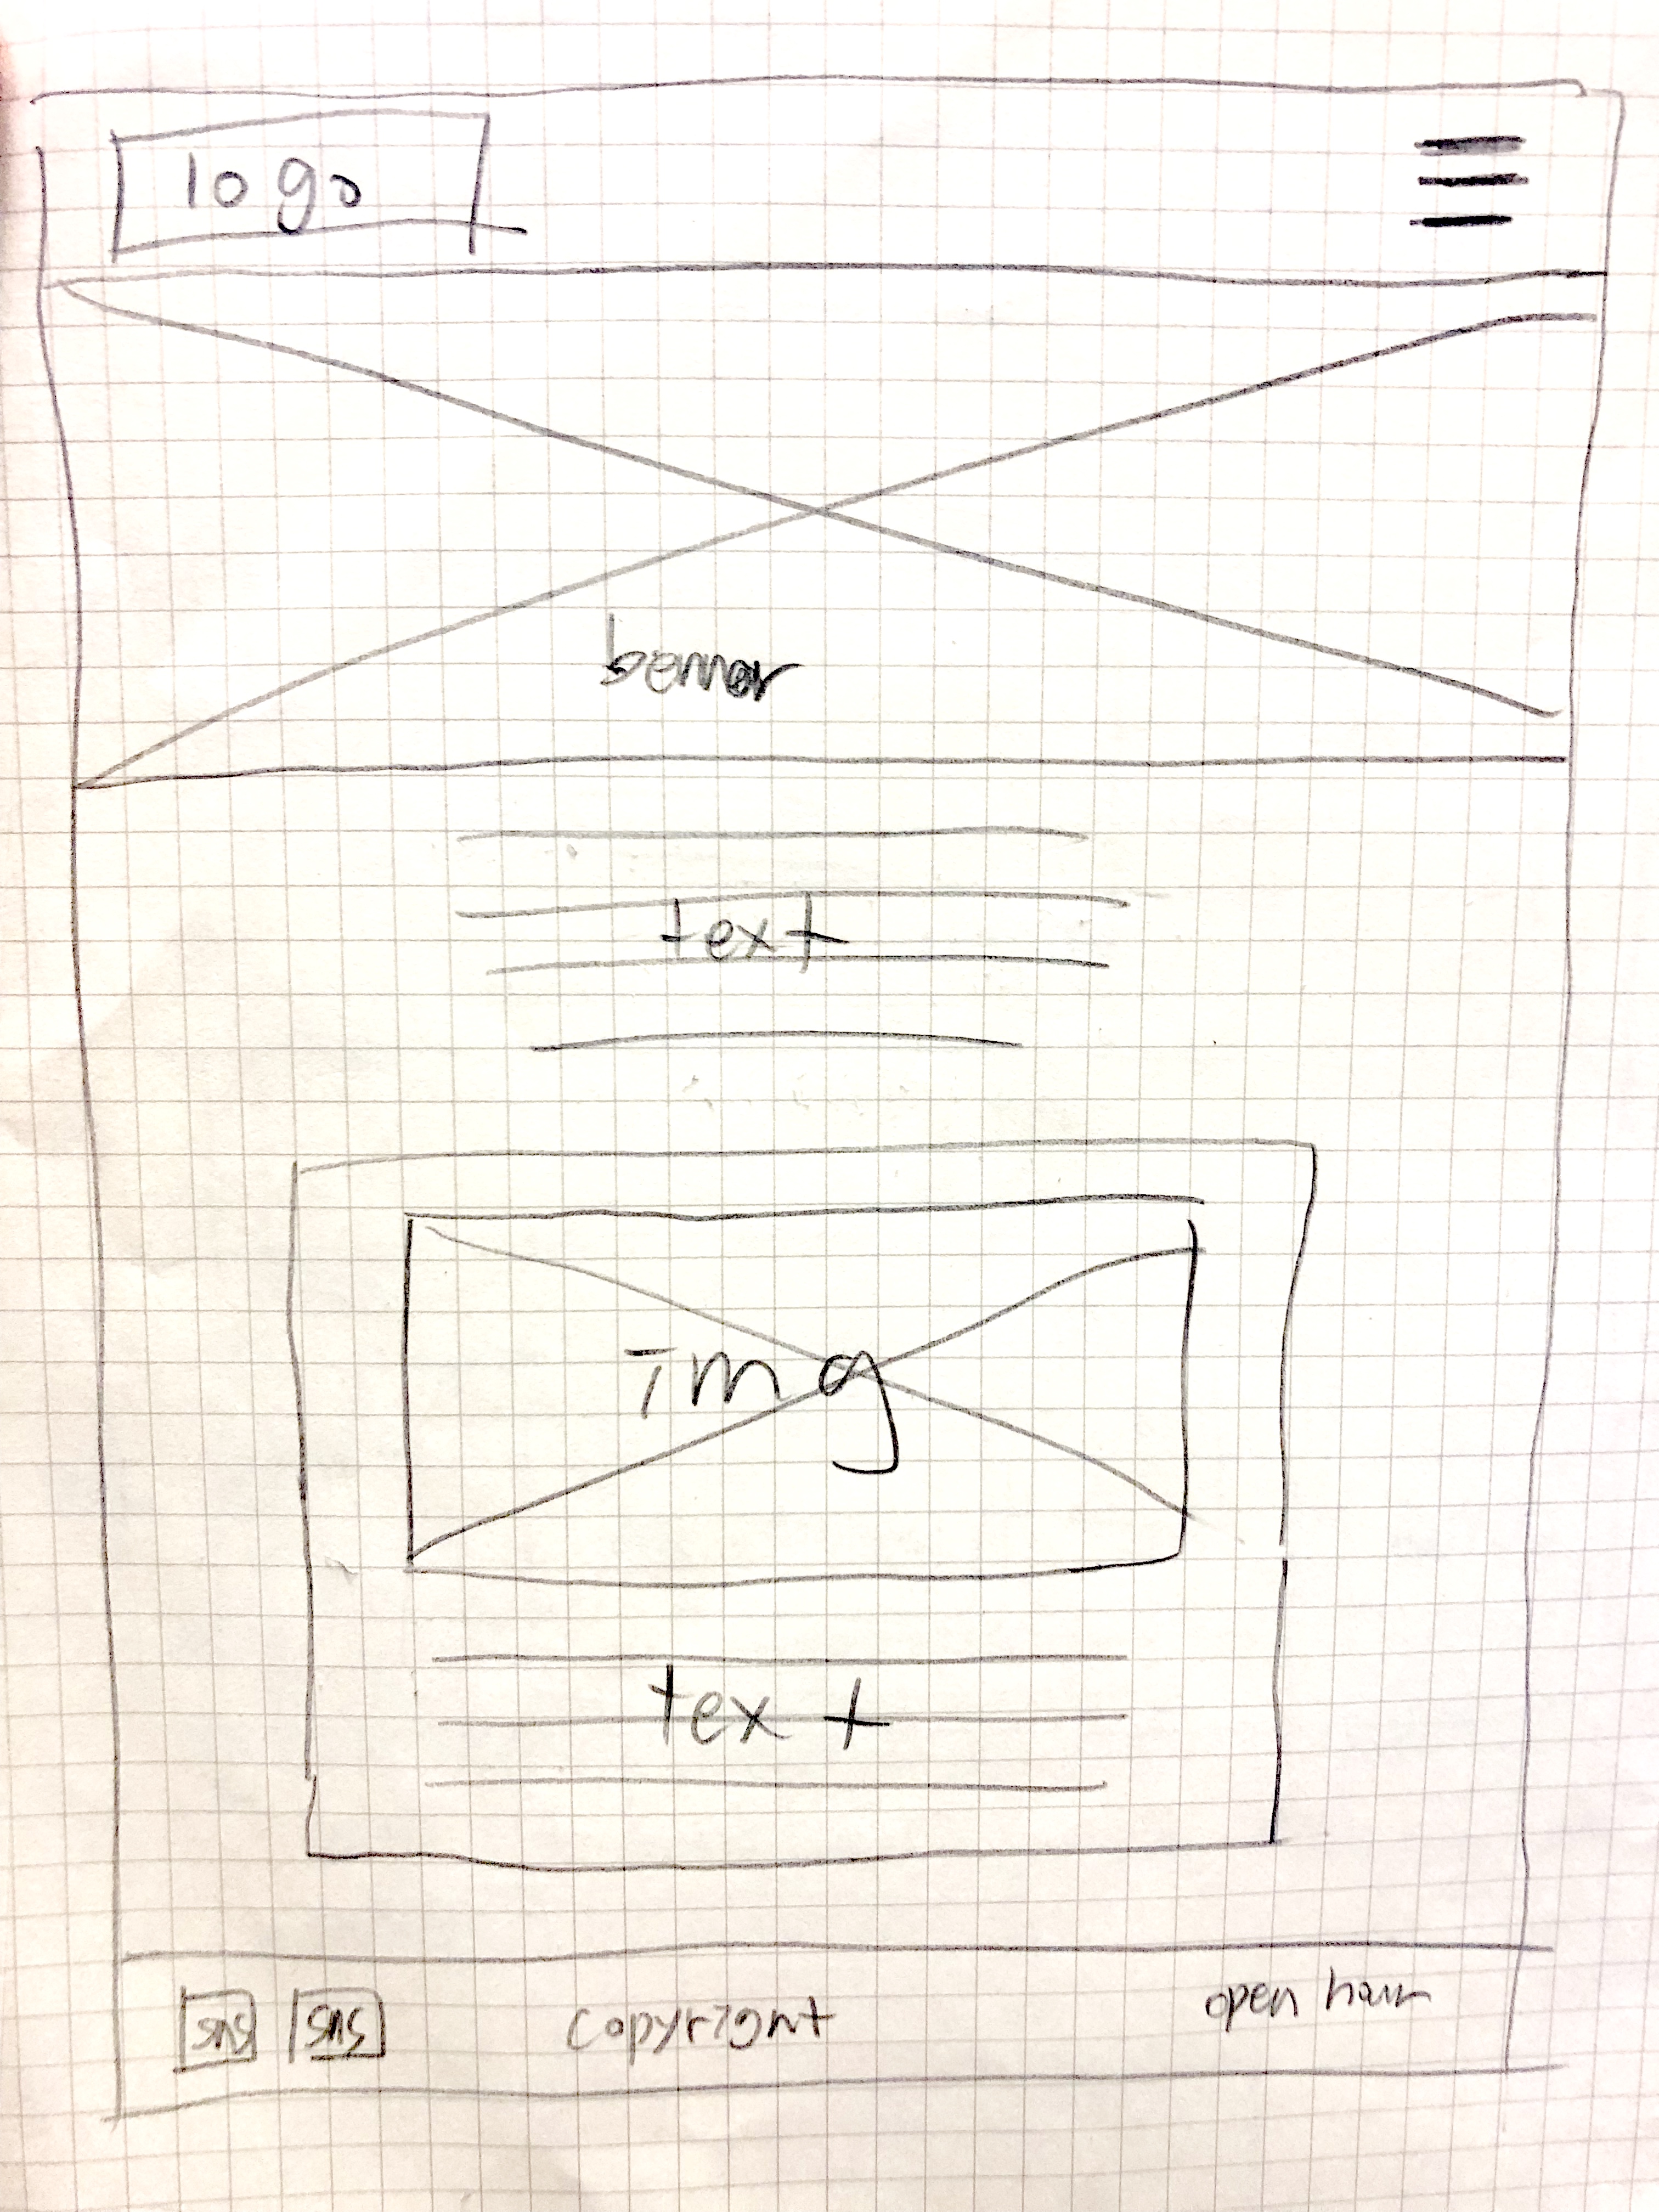 logo
banner
text
img
text
sns sns copyright open hour